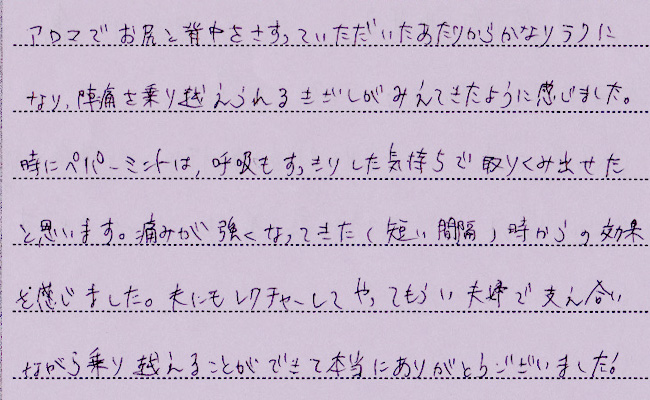 アロマでお尻と背中をさすっていただいたあたりからかなりラクに
なり、陣痛を乗り越えられるきざしがみえてきたように感じました。
時にペパーミントは、呼吸もすっきりした気持ちで取りくみ出せた
と思います。痛みが強くなってきた(短い間隔)時からの効果
を感じました。夫にもレクチャーしてやってもらい夫婦で支え合い
ながら乗り越えることができて本当にありがとうございました!